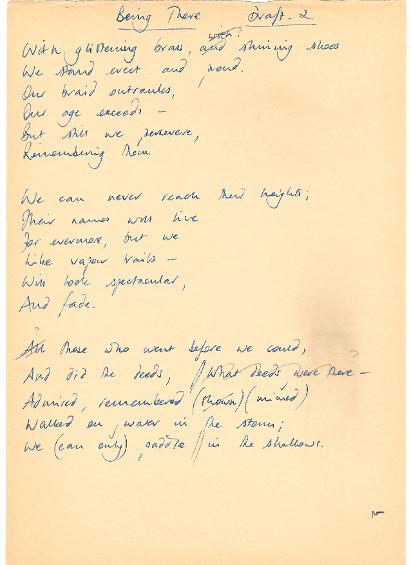 Being There Draft. 2
with?
With glistening brass, and shining shoes
We stand erect and proud.
Our braid outranks,
Our age exceeds –
But still we persevere,
Remembering them.
We can never reach their heights;
Their names will live
for evermore, but we
Like vapour trails –
Will look spectacular,
And fade.
? All those who went before we could,
And did the deeds, // What deeds were there? –
Admired, remembered (shown) (mimed)
Walked on water in the storm;
We (can only) paddle // in the shallows.